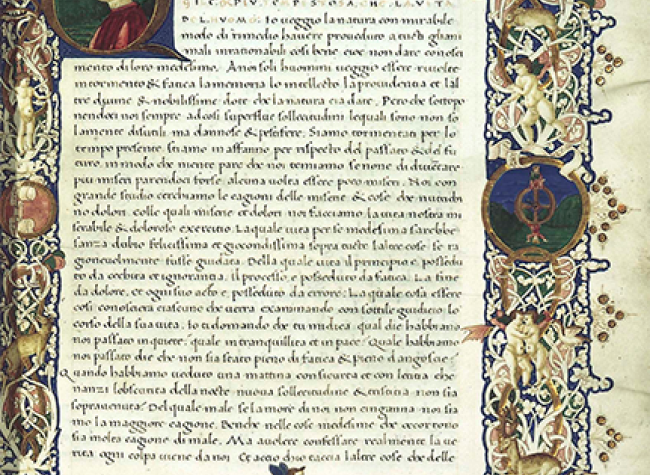 DEL HVOMO. io veggio la natura con mirabile
modo di rimedio havere proveduo a tutti gliani
mali irrationabili cosi bene e we non dare conosci
mento di loro medesimo. A noi soli huomini veggio essere rivolte
in tormento & fatica la memoria lo intellecto la providentia et lal
tre divine & nobilissime dote che la natura cia dare. Pero che sottopo
nendoci noi sempre ad cosi superflue sollecitudini lequali sono non so
lamente disutili ma dannose & pestifere. Siamo tormentati per lo
tempo presente. stiamo in affanno per rispecto del passato & del fu
turo. in modo che niente pare che noi temiamo se none di diventare
piu miseri parendoci forse alcuna volta essere poco miseri. Noi con
grande studio cerchiamo le cagioni delle miserie & cose che nutrichi
no dolori. colle quali miserie et dolori noi facciamo la vita nostra mi
serabile & doloroso exercitio. La quale vita per se medesima sarebbe
sanza dubio felicissima et giocondissima sopra tutte laltre cose se ra
gionevolmente fusse guidata. Della quale vita il principio e possedu
to da cechita et ignorantia. il processo e posseduto da fatica. La fine
da dolore. et ogni suo acto e posseduto da errore. La quale cosa essere
cosi conoscera ciascuno che vorra examinando con sottile giudicio lo
corso della sua vita. Io ti domando che tu mi dica qual die habbiamo
noi passato in quiete. quale in tranquillita et in pace. Quale habbiamo
noi passato die che non sia stato pieno di fatica & pieno dangoscie.
Quando habbiamo veduto una mattina con sicurta et con letitia che
nanzi lobscurita della nocte nuova sollecitudine & tristitia non sia
sopravenuta. Del quale male se lamore di noi non cinganna noi sia
mo la maggiore cagione. Benche nelle cose medesime che occorrono
sia molta cagione di male. Ma a volere confessare realmente la ve
rita ogni colpa viene da noi. Et accio chio taccia laltre cose che delle